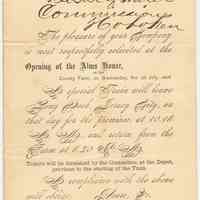 Commissioner
Hoboken
The pleasure of your Company
is most respectfully solicited at the
Opening of the Alms House,
at the
County Farm, on Wednesday,
A special Train will leave
Long Dock, Jersey City, on
that day for the premises at 10.16
A. M., and return from the
Farm at 6.30 P. M.
Tickets will be furnished by the Committee at the Depot,
previous to the starting of the Train.
A compliance with the above
will oblige Yours, &c.